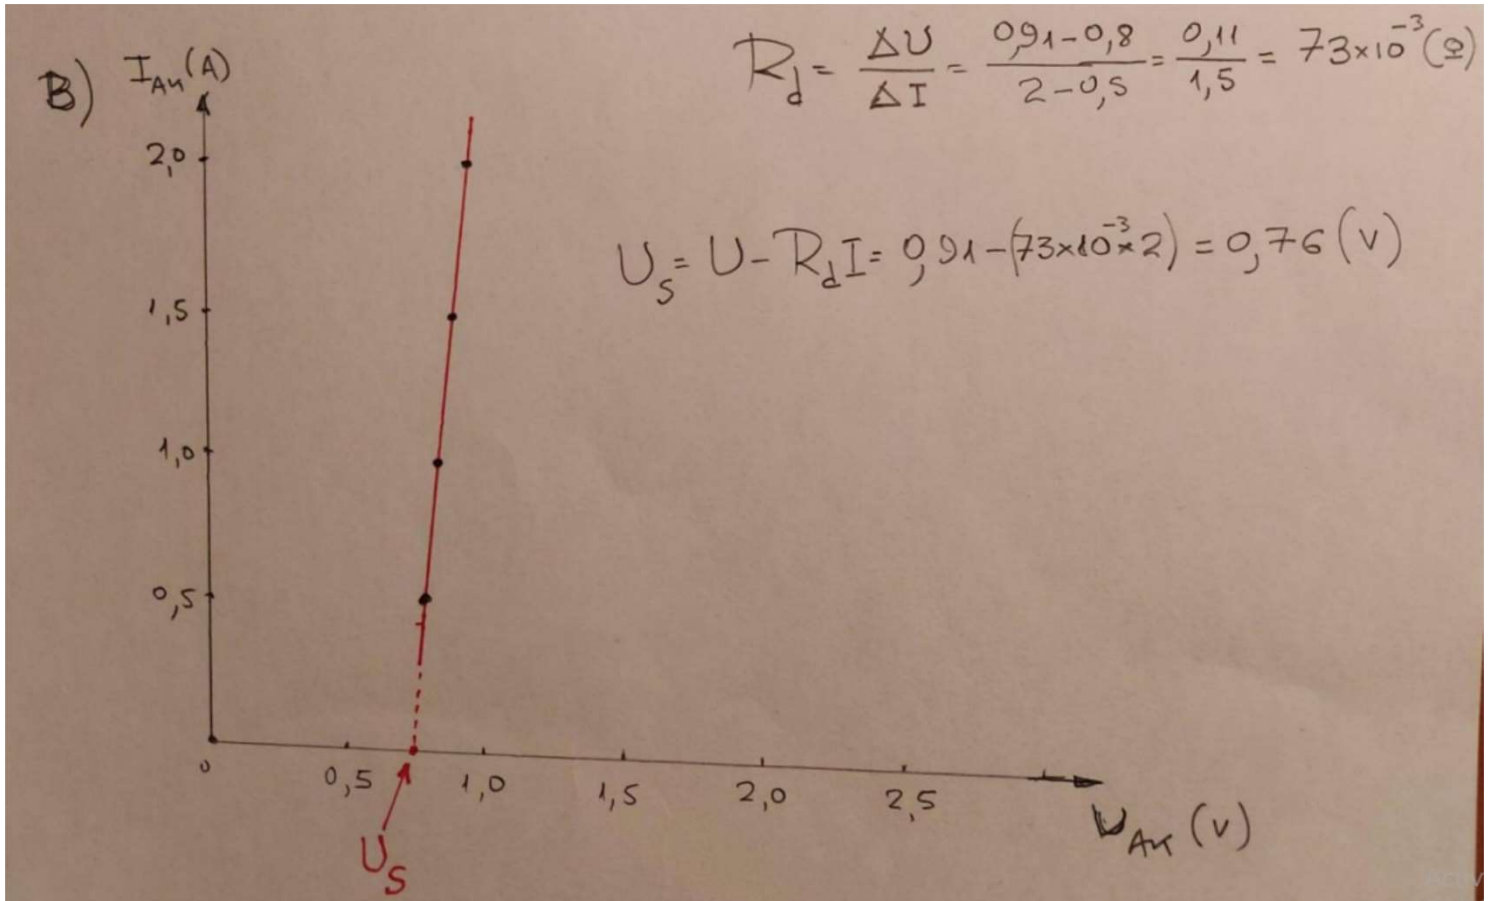 B) I_AK (A)
R_d = ΔU/ΔI = (0,91-0,8)/(2-0,5) = 0,11/1,5 = 73×10⁻³ (Ω)
2,0
U_S = U - R_d I = 0,91 - (73×10⁻³×2) = 0,76 (V)
1,5
1,0
0,5
0 0,5 1,0 1,5 2,0 2,5
U_AK (V)
U_S